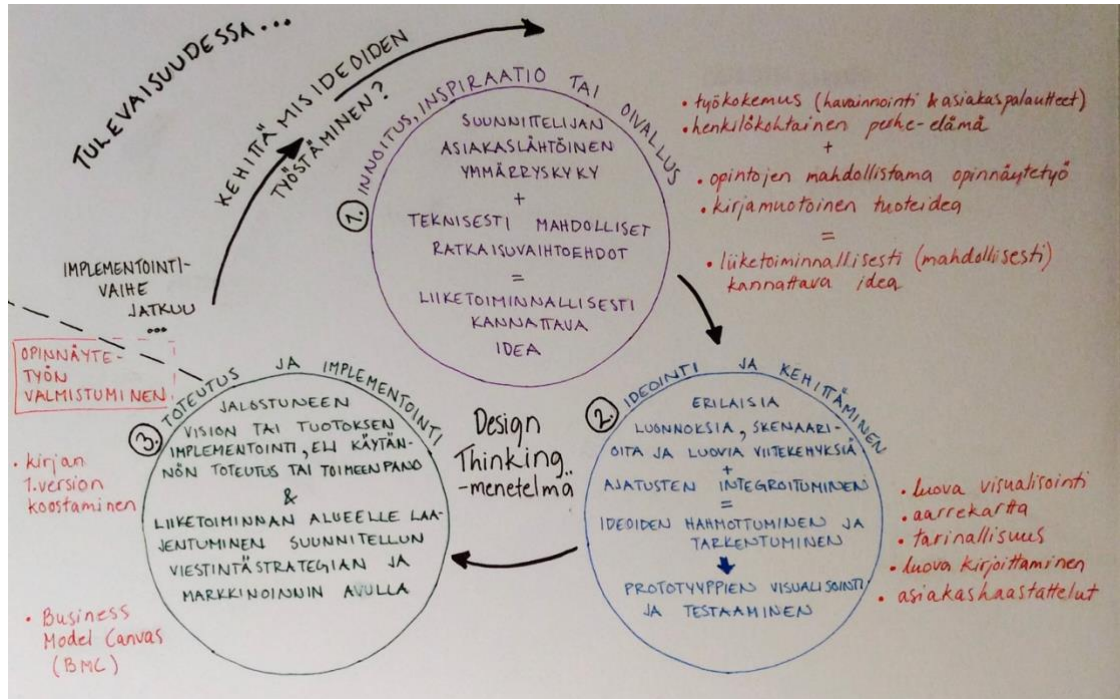 TULEVAISUUDESSA...
KEHITTÄMISIDEOIDEN
TYÖSTÄMINEN?
① INNOITUS, INSPIRAATIO TAI OIVALLUS
SUUNNITTELIJAN
ASIAKASLÄHTÖINEN
YMMÄRRYSKYKY
+
TEKNISESTI MAHDOLLISET
RATKAISUVAIHTOEHDOT
=
LIIKETOIMINNALLISESTI
KANNATTAVA
IDEA
• työkokemus (havainnointi & asiakaspalautteet)
• henkilökohtainen perhe-elämä
+
• opintojen mahdollistama opinnäytetyö
• kirjamuotoinen tuoteidea
=
• liiketoiminnallisesti (mahdollisesti)
kannattava idea
② IDEOINTI JA KEHITTÄMINEN
ERILAISIA
LUONNOKSIA, SKENAARI-
OITA JA LUOVIA VIITEKEHYKSIÄ
+
AJATUSTEN INTEGROITUMINEN
=
IDEOIDEN HAHMOTTUMINEN JA
TARKENTUMINEN
PROTOTYYPPIEN VISUALISOINTI
JA TESTAAMINEN
• luova visualisointi
• aarrekartta
• tarinallisuus
• luova kirjoittaminen
• asiakashaastattelut
Design
Thinking
-menetelmä
③ TOTEUTUS JA IMPLEMENTOINTI
JALOSTUNEEN
VISION TAI TUOTOKSEN
IMPLEMENTOINTI, ELI KÄYTÄN-
NÖN TOTEUTUS TAI TOIMEENPANO
&
LIIKETOIMINNAN ALUEELLE LAA-
JENTUMINEN SUUNNITELLUN
VIESTINTÄSTRATEGIAN JA
MARKKINOINNIN AVULLA
IMPLEMENTOINTI-
VAIHE
JATKUU
...
OPINNÄYTE-
TYÖN
VALMISTUMINEN
• kirjan
1. version
koostaminen
• Business
Model Canvas
(BMC)